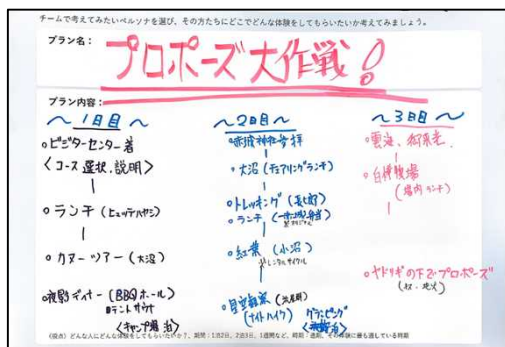 チームで考えてみたいペルソナを選び、その方たちにどこでどんな体験をしてもらいたいか考えてみましょう。
プラン名：
プロポーズ大作戦！
プラン内容：
～1日目～
ビジターセンター着
〈コース選択、説明〉
ランチ（ヒュッテハヤシ）
カヌーツアー（大沼）
夜景ディナー（BBQホール）
テントサウナ
〈キャンプ場 泊〉
～2日目～
赤城神社参拝
大沼（チェアリングランチ）
トレッキング（長七郎）
ランチ
弁当
紅葉（小沼）
レンタルサイクル
星空観察
（ナイトハイク）
グランピング
～3日目～
雲海、御来光
白樺牧場
（場内ランチ）
ヤドリギの下でプロポーズ
（視点）どんな人にどんな体験をしてもらいたいか？、期間：1泊2日、2泊3日、1週間など、時期：通期、その体験に最も適している時期